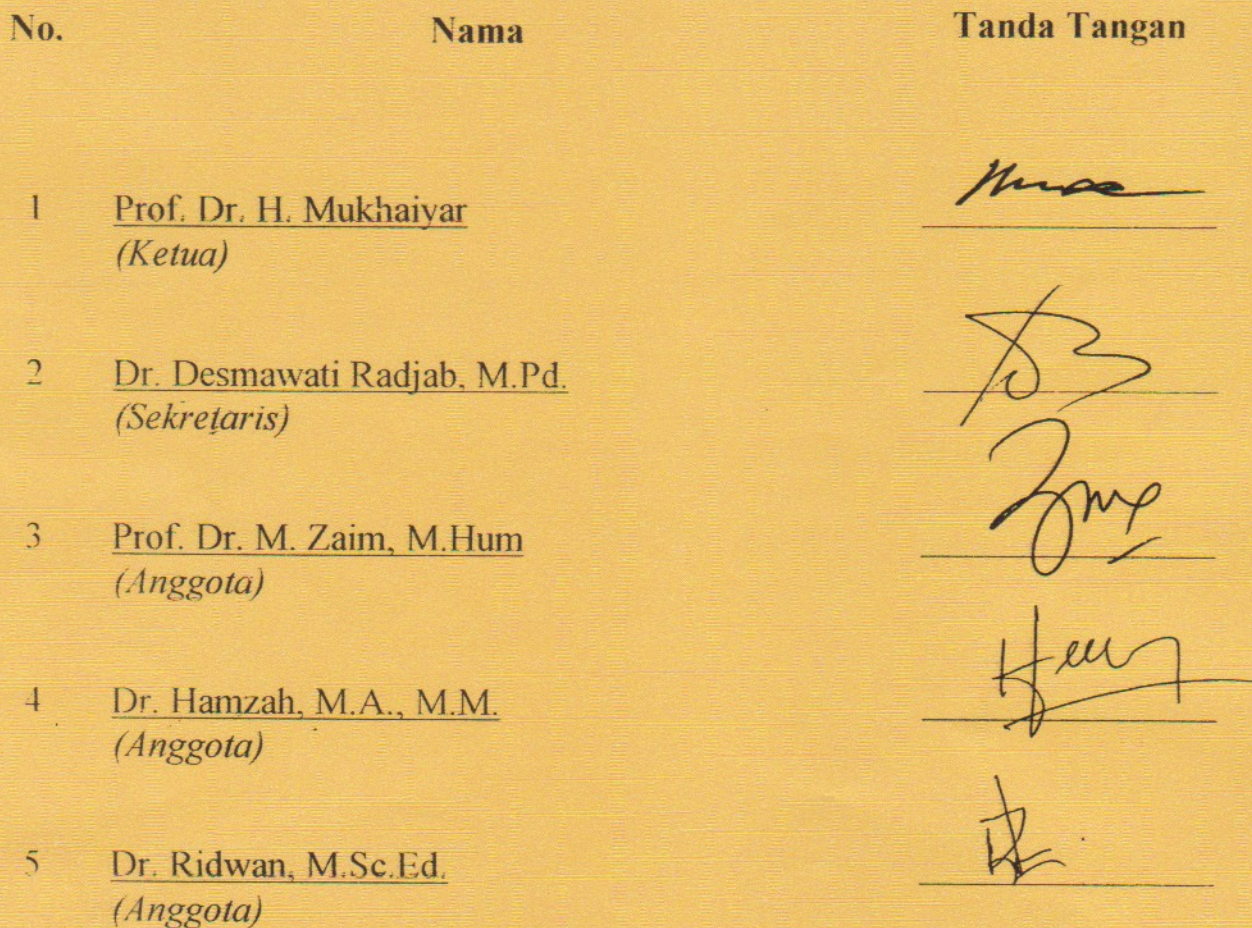 No. Nama Tanda Tangan
1 Prof. Dr. H. Mukhaiyar
(Ketua)
2 Dr. Desmawati Radjab, M.Pd.
(Sekretaris)
3 Prof. Dr. M. Zaim, M.Hum
(Anggota)
4 Dr. Hamzah, M.A., M.M.
(Anggota)
5 Dr. Ridwan, M.Sc.Ed.
(Anggota)